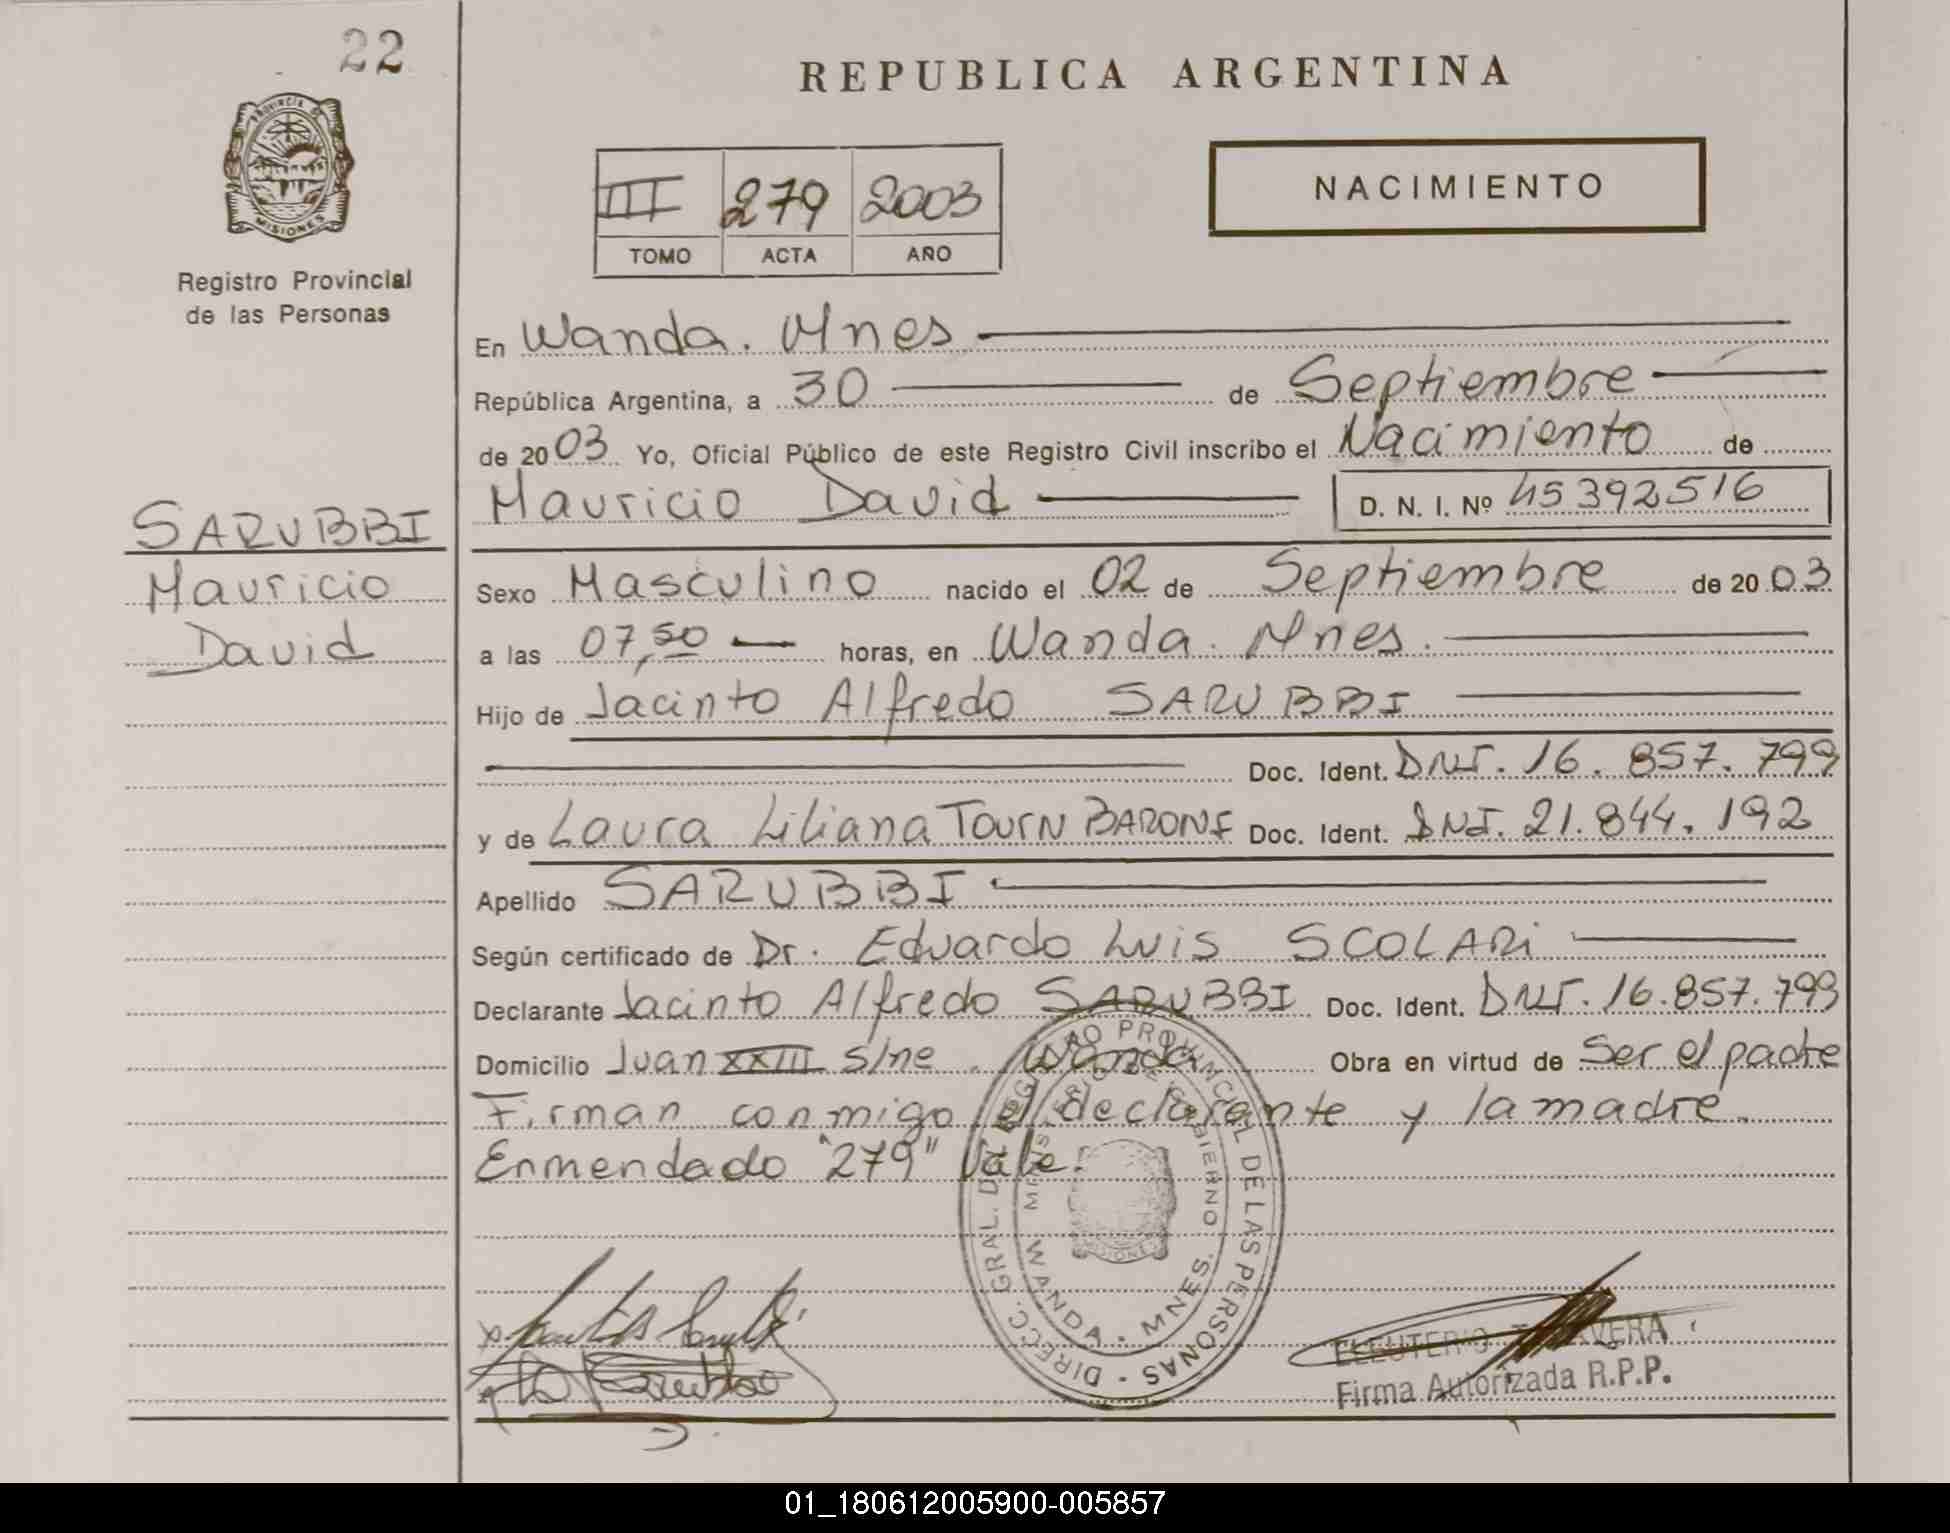 22
PROVINCIA DE
MISIONES
Registro Provincial
de las Personas
SARUBBI
Mauricio
David
REPUBLICA ARGENTINA
III 279 2003
TOMO ACTA AÑO
NACIMIENTO
En Wanda. Mnes
República Argentina, a 30 de Septiembre
de 2003 Yo, Oficial Público de este Registro Civil inscribo el Nacimiento de
Mauricio David D. N. I. Nº 45392516
Sexo Masculino nacido el 02 de Septiembre de 2003
a las 07,50 horas, en Wanda. Mnes.
Hijo de Jacinto Alfredo SARUBBI
Doc. Ident. DNI. 16.857.799
y de Laura Liliana TOURN BARONE Doc. Ident. DNI. 21.844.192
Apellido SARUBBI
Según certificado de Dr. Eduardo Luis SCOLARI
Declarante Jacinto Alfredo SARUBBI Doc. Ident. DNI. 16.857.799
Domicilio Juan XXIII s/ne. Wanda Obra en virtud de Ser el padre
Firman conmigo el declarante y la madre.
Enmendado "279" Vale.
DIRECC. GRAL. DEL REGISTRO PROVINCIAL DE LAS PERSONAS
MINISTERIO DE GOBIERNO
WANDA - MNES.
MISIONES
ELEUTERIO
Firma Autorizada R.P.P.
01_180612005900-005857